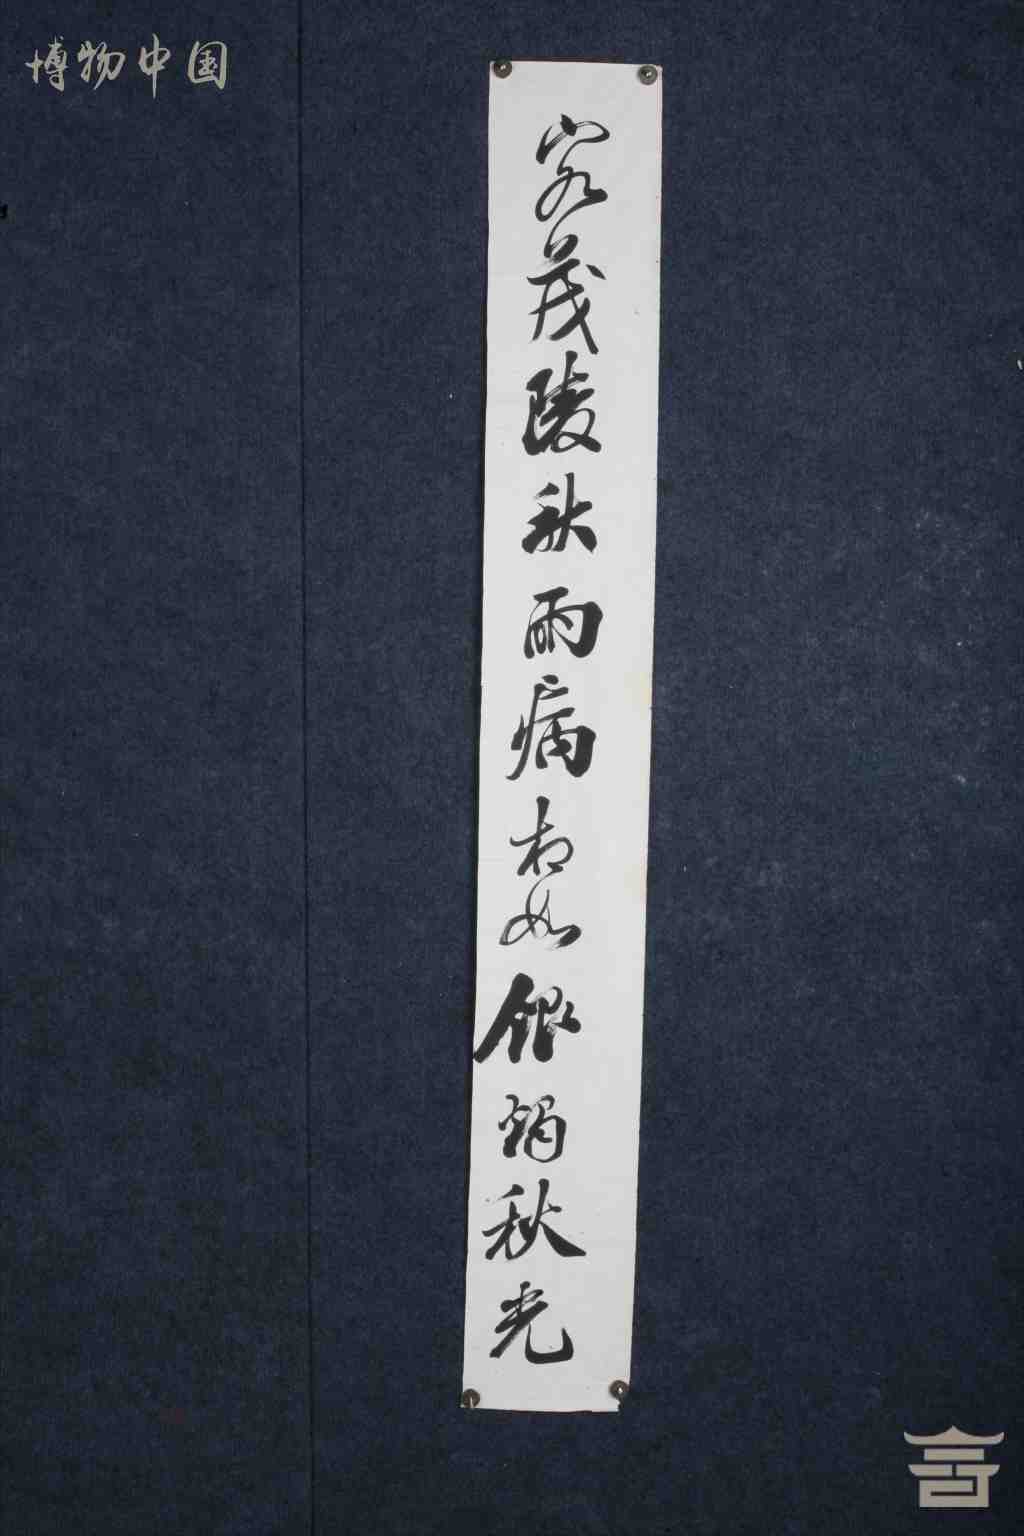 博物中国
客茂陵秋雨病相如银烛秋光